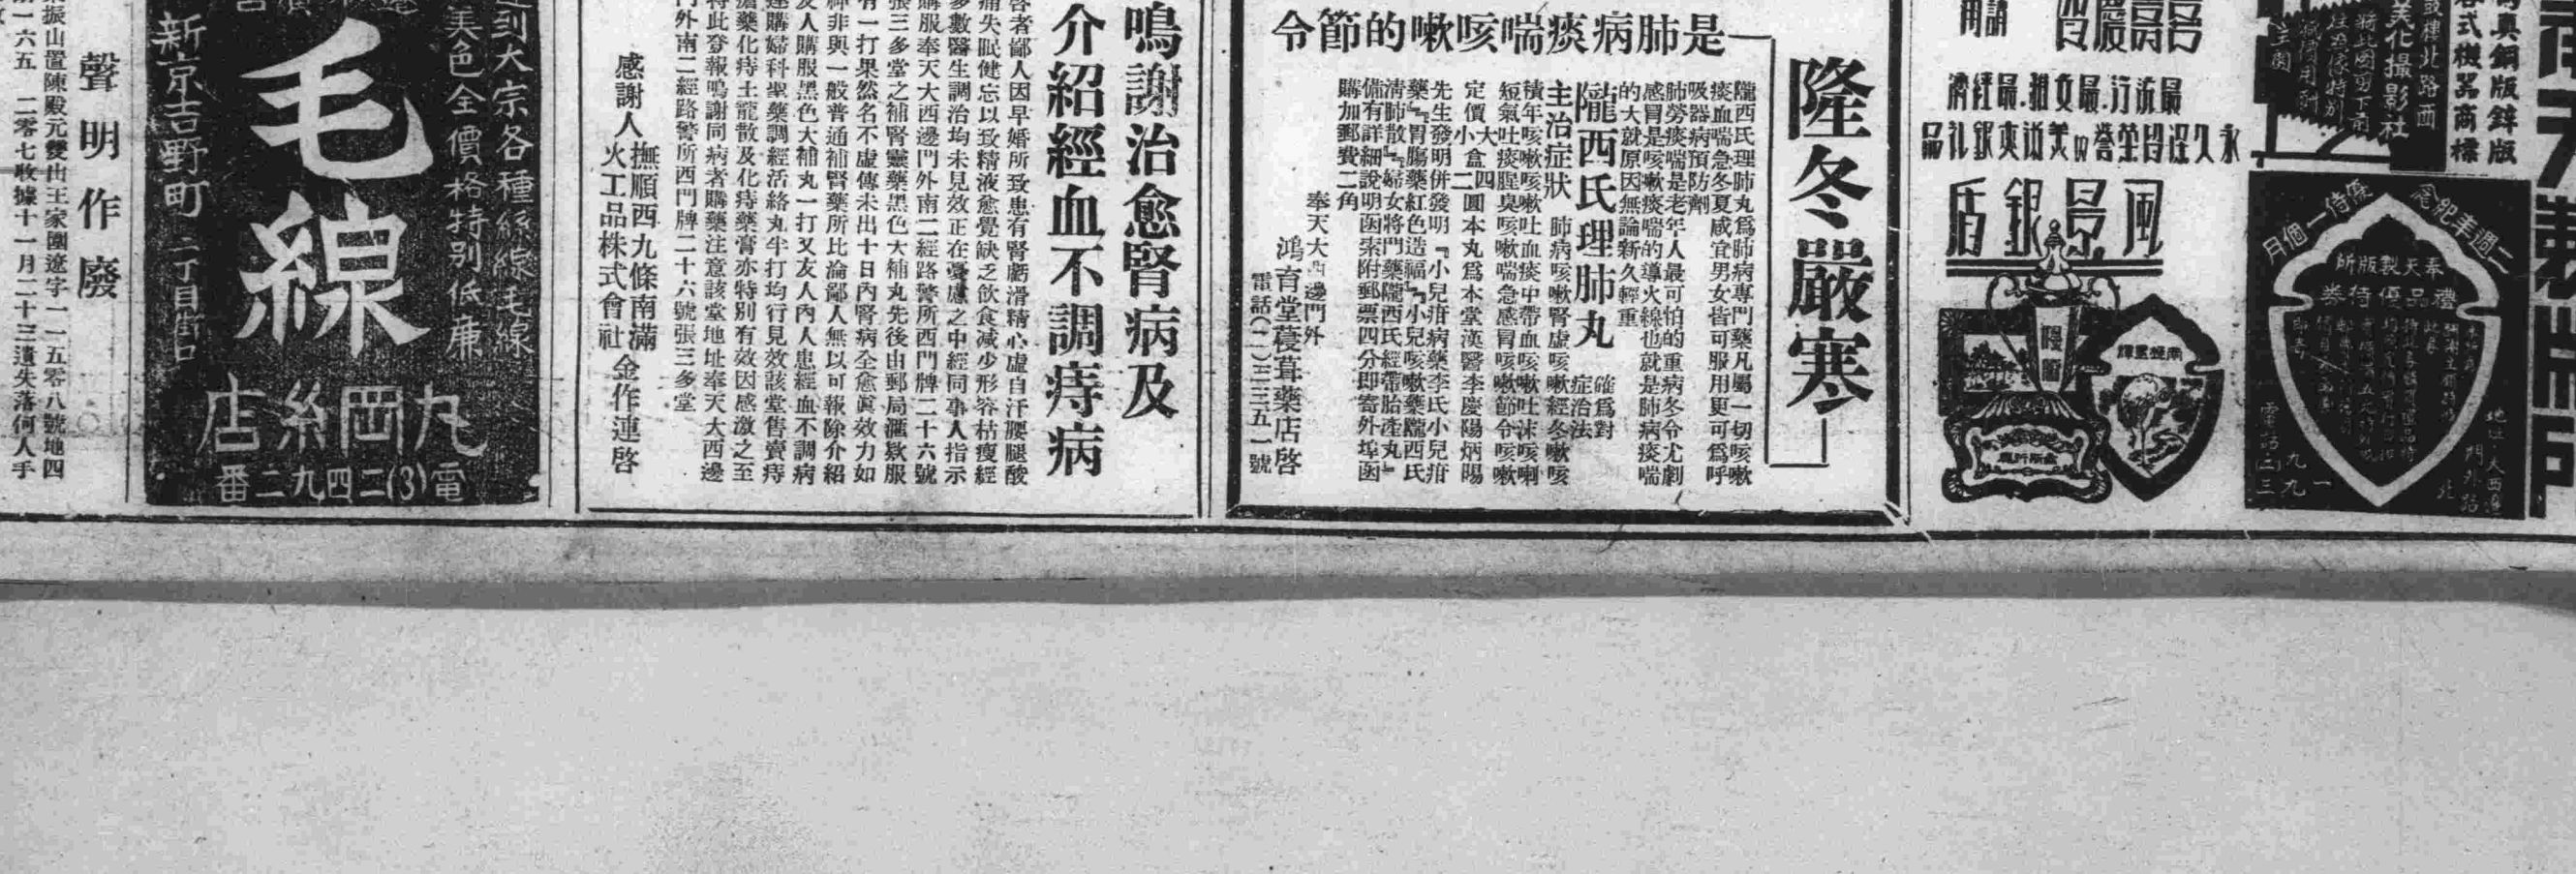 寫眞銅版鋅版
各式機器商標
鼓樓北路西
美化撮影社
將此圖剪下前
往照像特別
二週年紀念
優待一個月
奉天製版所
禮品優待券
最流行.最文雅.最經濟
永久深留榮譽的美術爽銀禮品
風景銀盾
隆冬嚴寒
是肺病痰喘咳嗽的節令
隴西氏理肺丸爲肺病專門藥凡屬一切咳嗽
痰血喘急冬夏咸宜男女皆可服用更可爲呼
吸器病預防劑
肺勞痰喘是老年人最可怕的重病冬令尤劇
感冒是咳嗽痰喘的導火線也就是肺病痰喘
的大就原因無論新久輕重
隴西氏理肺丸 確爲對症治法
主治症狀 肺病咳嗽腎虛咳嗽經冬嗽咳
積年咳嗽咳嗽吐血痰中帶血咳嗽吐沫咳喇
短氣吐痰腥臭咳嗽喘急感冒咳嗽節令咳嗽
定價大盒四圓小盒二圓本丸爲本堂漢醫李慶陽炳陽
先生發明併發明『小兒疳病藥李氏小兒疳
藥』『胃腸藥紅色造福』『小兒咳嗽藥隴西氏
淸肺散』『婦女將門藥隴西氏經帶胎產丸』
備有詳細說明函索附郵票四分即寄外埠函
購加郵費二角
奉天大西邊門外
鴻育堂蔘茸藥店啓
電話(二)三三五一號
鳴謝治愈腎病及
介紹經血不調痔病
啓者鄙人因早婚所致患有腎虧滑精心虛自汗腰腿酸
痛失眠健忘以致精液愈覺缺乏飲食減少形容枯瘦經
多數醫生調治均未見效正在憂慮之中經同事人指示
購服奉天大西邊門外南二經路警所西門牌二十六號
張三多堂之補腎靈藥黑色大補丸先後由郵局滙欵服
有一打果然名不虛傳未出十日內腎病全愈眞效力如
神非與一般普通補腎藥所比淪鄙人無以可報除介紹
友人購服黑色大補丸一打又友人內人患經血不調病
連購婦科聖藥調經活絡丸半打均行見效該堂售賣痔
瘡藥化痔土龍散及化痔藥膏亦特別有效因感激之至
特此登報鳴謝同病者購藥注意該堂地址奉天大西邊
門外南二經路警所西門牌二十六號張三多堂
感謝人 撫順西九條南滿火工品株式會社 金作連啓
運到大宗各種絲線毛線
美色全價格特別低廉
毛線
新京吉野町二丁目街口
丸岡絲店
電(3)二四九二番
聲明作廢
振山置陳殿元雙由王家園遼字一一五零八號地四
一六五 二零七收據十一月二十三遺失落何人手